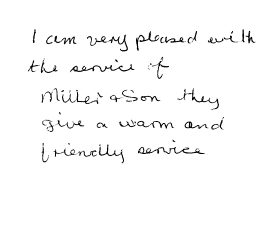 I am very pleased with
the service of
Miller & Son they
give a warm and
friendly service